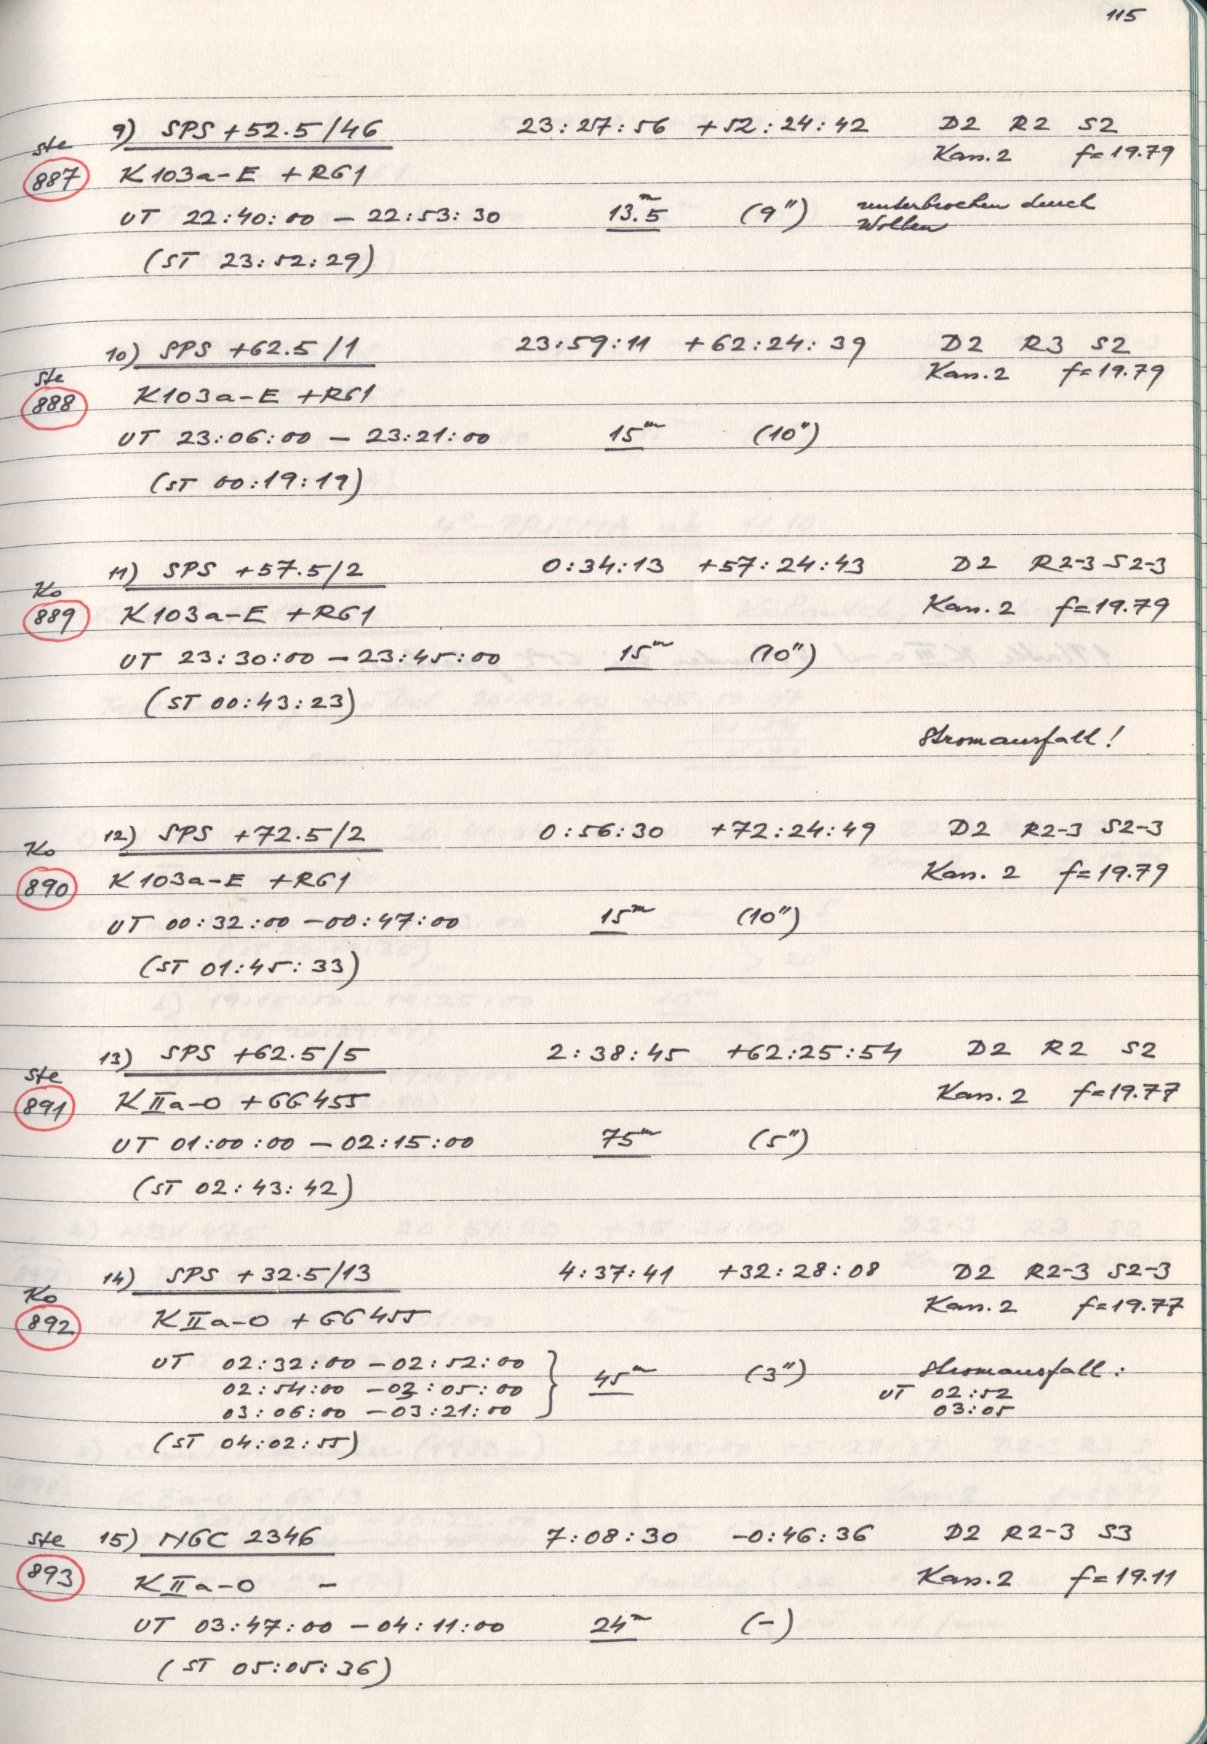 115
9) SPS +52.5/46 23:27:56 +52:24:42 D2 R2 S2
Ste Kas.2 f=19.79
887 K103a-E +RG1
UT 22:40:00 – 22:53:30 13.5ᵐ (9") unterbrochen durch
Wolken
(ST 23:52:29)
10) SPS +62.5/1 23:59:11 +62:24:39 D2 R3 S2
Ste Kas.2 f=19.79
888 K103a-E +RG1
UT 23:06:00 – 23:21:00 15ᵐ (10")
(ST 00:19:19)
11) SPS +57.5/2 0:34:13 +57:24:43 D2 R2-3 S2-3
Ko
889 K103a-E +RG1 Kas.2 f=19.79
UT 23:30:00 – 23:45:00 15ᵐ (10")
(ST 00:43:23)
Stromausfall!
12) SPS +72.5/2 0:56:30 +72:24:49 D2 R2-3 S2-3
Ko
890 K103a-E +RG1 Kas. 2 f=19.79
UT 00:32:00 – 00:47:00 15ᵐ (10")
(ST 01:45:33)
13) SPS +62.5/5 2:38:45 +62:25:54 D2 R2 S2
Ste
891 KIIa-O +GG455 Kas. 2 f=19.77
UT 01:00:00 – 02:15:00 75ᵐ (5")
(ST 02:43:42)
14) SPS +32.5/13 4:37:41 +32:28:08 D2 R2-3 S2-3
Ko
892 KIIa-O +GG455 Kas.2 f=19.77
UT 02:32:00 – 02:52:00
02:54:00 – 03:05:00 45ᵐ (3") Stromausfall:
UT 02:52
03:06:00 – 03:21:00 03:05
(ST 04:02:55)
Ste 15) NGC 2346 7:08:30 -0:46:36 D2 R2-3 S3
893 KIIa-O – Kas.2 f=19.11
UT 03:47:00 – 04:11:00 24ᵐ (-)
(ST 05:05:36)